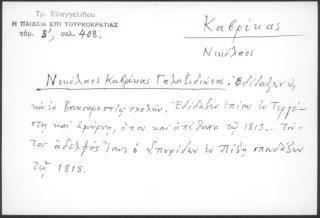 Τρ. Εὐαγγελίδου
Η ΠΑΙΔΕΙΑ ΕΠΙ ΤΟΥΡΚΟΚΡΑΤΙΑΣ
τόμ. Β', σελ. 408.
Καβρίκας
Νικόλαος
Νικόλαος Καβρίκας Γαλαξιδιώτης. Ἐδίδαξεν ἐν
τῇ ἐν Βουκουρεστίῳ σχολῇ. Ἐδίδαξεν ἐπίσης ἐν Τεργέ-
στῃ καὶ Σμύρνῃ, ὅπου καὶ ἀπέθανε τῷ 1813... Τού-
του ἀδελφὸς ἴσως ὁ Σπυρίδων ἐν Πίζῃ σπουδάζων
τῷ 1818.